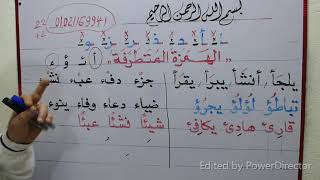 بسم الله الرحمن الرحيم
"الهمزة المتطرفة" أ ئ ؤ ء
يلجأ، أنشأ يبرأ، يقرأ جزء دفء عبء نشء
تباطؤ لؤلؤ يجرؤ ضياء دعاء وفاء ينوء
قارئ هادئ يكافئ شيئًا فشيئًا عبئًا
Edited by PowerDirector